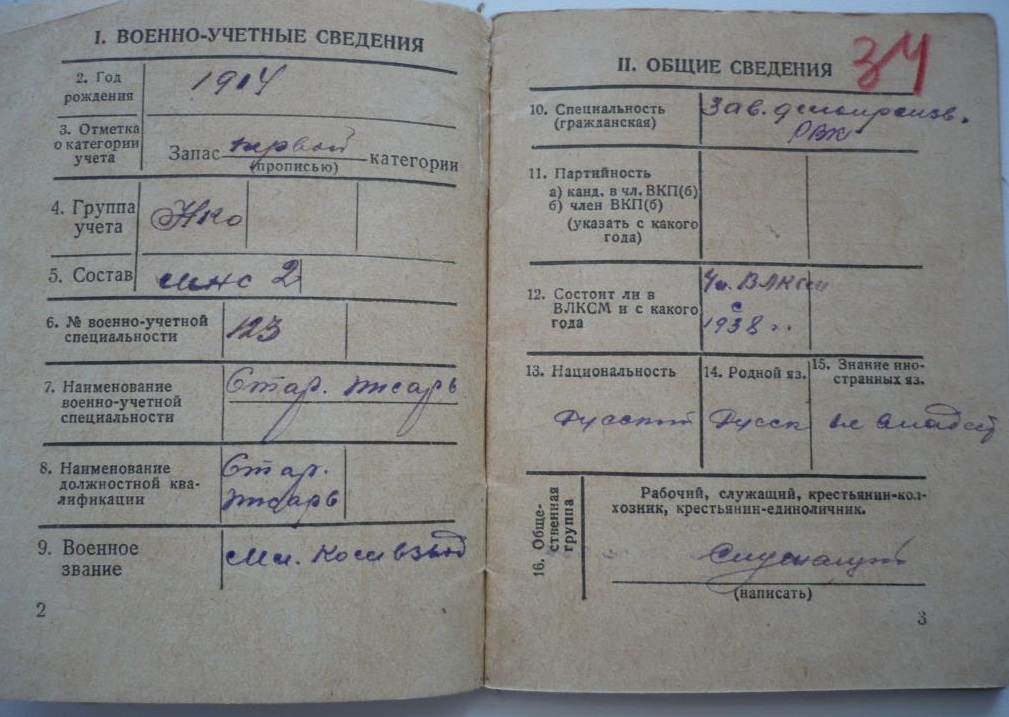 I. ВОЕННО-УЧЕТНЫЕ СВЕДЕНИЯ
2. Год
рождения
1914
3. Отметка
о категории
учета
Запас первой категории
(прописью)
4. Группа
учета
НКО
5. Состав
мнс 2
6. № военно-учетной
специальности
123
7. Наименование
военно-учетной
специальности
Стар. писарь
8. Наименование
должностной ква-
лификации
Стар.
писарь
9. Военное
звание
Мл. Комвзвод
2
34
II. ОБЩИЕ СВЕДЕНИЯ
10. Специальность
(гражданская)
Зав. делопроизв.
РВК
11. Партийность
а) канд. в чл. ВКП(б)
б) член ВКП(б)
(указать с какого
года)
12. Состоит ли в
ВЛКСМ и с какого
года
Чл. ВЛКСМ
с
1938 г.
13. Национальность
Русский
14. Родной яз.
Русск
15. Знание ино-
странных яз.
не владеет
16. Обще-
ственная
группа
Рабочий, служащий, крестьянин-кол-
хозник, крестьянин-единоличник.
Служащий
(написать)
3